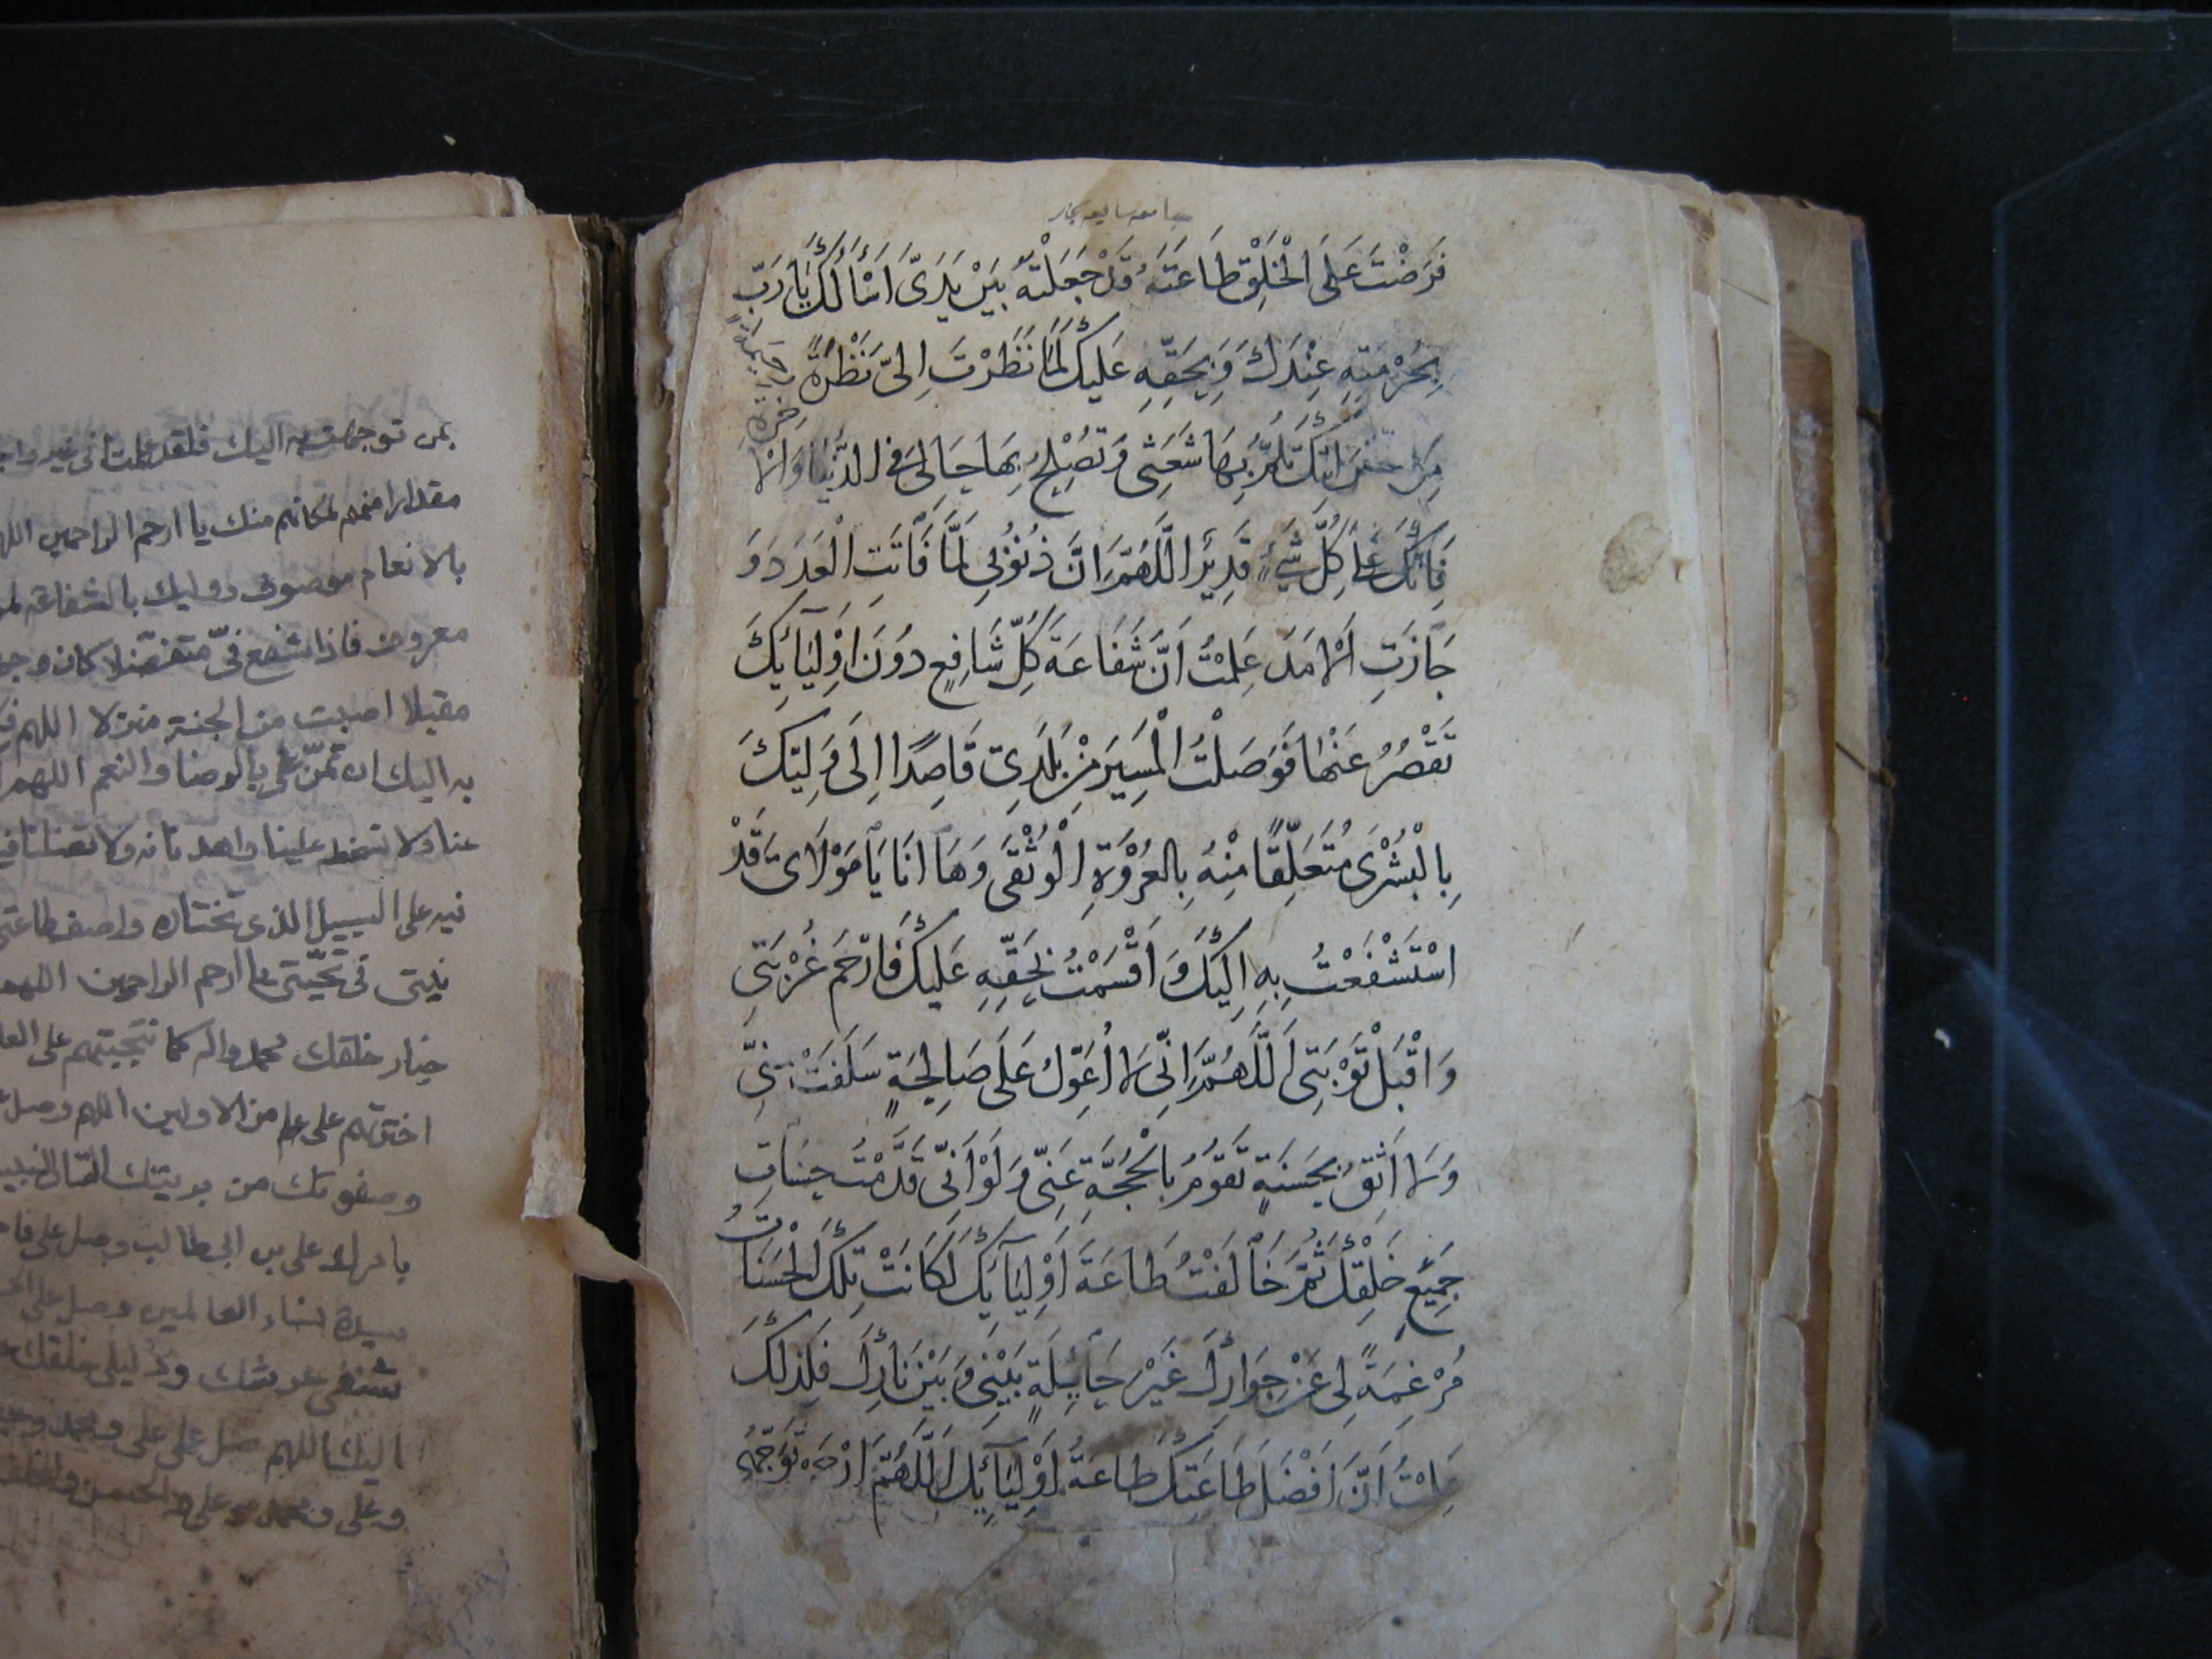 فَرَضْتَ عَلَى الْخَلْقِ طَاعَتَهُ قَدْ جَعَلْتُهُ بَيْنَ يَدَيَّ اَسْأَلُكَ يَا رَبِّ
بِحُرْمَتِهِ عِنْدَكَ وَبِحَقِّهِ عَلَيْكَ لَمَّا نَظَرْتَ اِلَىَّ نَظْرَةً رَحِيمَةً
تَلُمُّ بِهَا شَعَثِى وَتُصْلِحُ بِهَا حَالِىَ فِى الدُّنْيَا وَالْاخِرَةِ
فَاِنَّكَ عَلَى كُلِّ شَىْءٍ قَدِيرٌ اَللَّهُمَّ اِنَّ ذُنُوْبِى لَمَّا فَاتَتِ الْعَدَدَ وَ
جَازَتِ الْاَمَدَ عَلِمْتُ اَنَّ شَفَاعَةَ كُلِّ شَافِعٍ دُوْنَ اَوْلِيَآئِكَ
تَقْصُرُ عَنْهَا فَوَصَلْتُ الْمَسِيْرَ مِنْ بَلَدِى قَاصِدًا اِلَى وَلِيِّكَ
بِالْبُشْرَى مُتَعَلِّقًا مِنْهُ بِالْعُرْوَةِ الْوُثْقَى وَهَا اَنَا يَا مَوْلَاىَ قَدْ
اسْتَشْفَعْتُ بِهِ اِلَيْكَ وَ اَقْسَمْتُ بِحَقِّهِ عَلَيْكَ فَارْحَمْ غُرْبَتِى
وَاقْبَلْ تَوْبَتِى اَللَّهُمَّ اِنِّى لَا اُعَوِّلُ عَلَى صَالِحَةٍ سَلَفَتْ مِنِّى
وَلَا اَثِقُ بِحَسَنَةٍ تَقُوْمُ بِالْحُجَّةِ عَنِّى وَلَوْ اَنِّى قَدَّمْتُ حَسَنَاتِ
جَمِيْعِ خَلْقِكَ ثُمَّ خَالَفْتُ طَاعَةَ اَوْلِيَآئِكَ لَكَانَتْ تِلْكَ الْحَسَنَاتُ
مُزْعِجَةً لِى عَنْ جِوَارِكَ غَيْرَ حَائِلَةٍ بَيْنِى وَبَيْنَ نَارِكَ فَلِذٰلِكَ
عَلِمْتُ اَنَّ اَفْضَلَ طَاعَتِكَ طَاعَةُ اَوْلِيَآئِكَ اَللَّهُمَّ ارْحَمْ تَوَجُّهِى
بمن توجهت به اليك فلقد علمت انى غير
مقدارا منهم لمكانهم منك يا ارحم الراحمين
بالانعام موصوف ووليك بالشفاعة
معروف فاذا شفع فىّ متفضلا كان
مقبلا اصبت من الجنة منزلا اللهم
به اليك ان تمنّ علىّ بالرضا والنعم اللهم
عنا ولا تسخط علينا واهدنا به ولا تضلنا فيه
فيه على السبيل الذى تختاره واضف طاعتى
نيتى فى تحيّتى يا ارحم الراحمين اللهم
خيار خلقك محمد واله كما انتجبتهم على
اخترتهم على علم من الاولين اللهم وصل
وصفوتك من بريتك التالى
بامرك على بن ابى طالب وصل على
سيدة نساء العالمين وصل على
شنفى عرشك ودليلى خلقك
اليك اللهم صل على على ومحمد
وعلى ومحمد وعلى والحسن والخلف